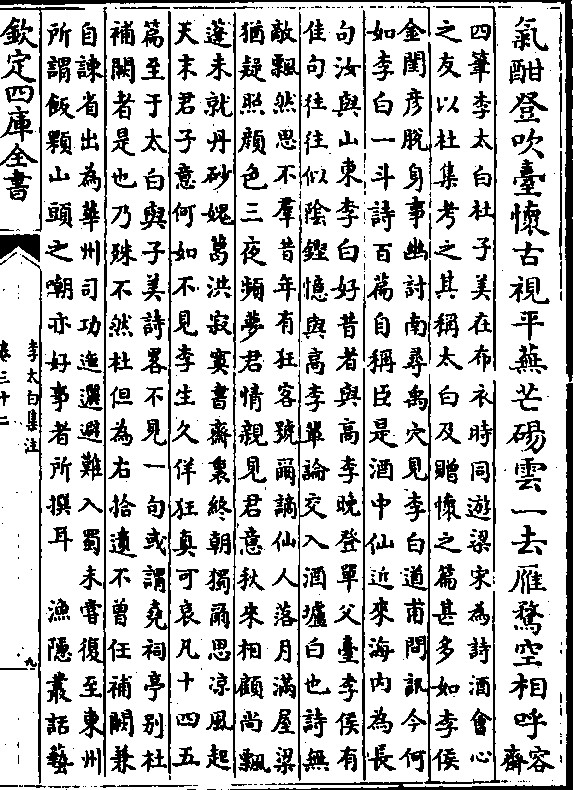 氣酣登吹臺懷古視平蕪芒碭雲一去雁騖空相呼容齋
四筆李太白杜子美在布衣時同遊梁宋為詩酒會心
之友以杜集考之其稱太白及贈懷之篇甚多如李侯
金閨彥脫身事幽討南尋禹穴見李白道甫問訊今何
如李白一斗詩百篇自稱臣是酒中仙近來海內為長
句汝與山東李白好昔者與高李晚登單父臺李侯有
佳句往往似陰鏗憶與高李輩論交入酒壚白也詩無
敵飄然思不羣昔年有狂客號爾謫仙人落月滿屋梁
猶疑照顏色三夜頻夢君情親見君意秋來相顧尚飄
蓬未就丹砂媿葛洪寂寞書齋裏終朝獨爾思涼風起
天末君子意何如不見李生久佯狂真可哀凡十四五
篇至于太白與子美詩畧不見一句或謂堯祠亭別杜
補闕者是也乃殊不然杜但為右拾遺不曾任補闕兼
自諫省出為華州司功迤邐避難入蜀未嘗復至東州
所謂飯顆山頭之嘲亦好事者所撰耳　漁隱叢話藝
欽定四庫全書
李太白集注
卷三十二
九